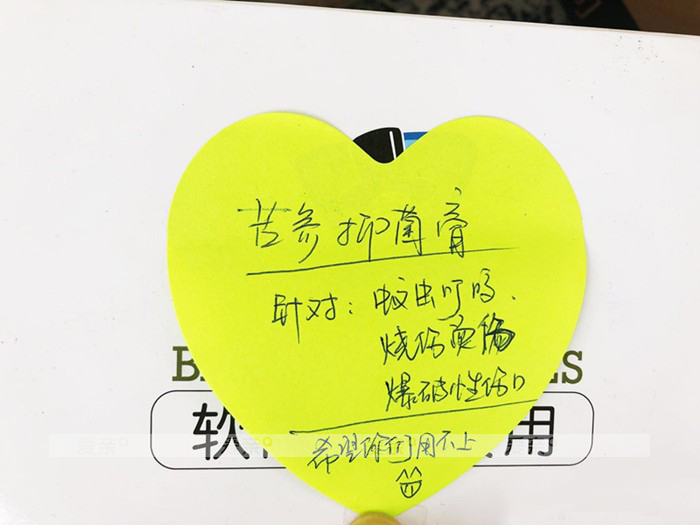 苦参抑菌膏
针对：蚊虫叮咬、
烧伤烫伤
爆破性伤口
希望你们用不上
B
ES
软
用